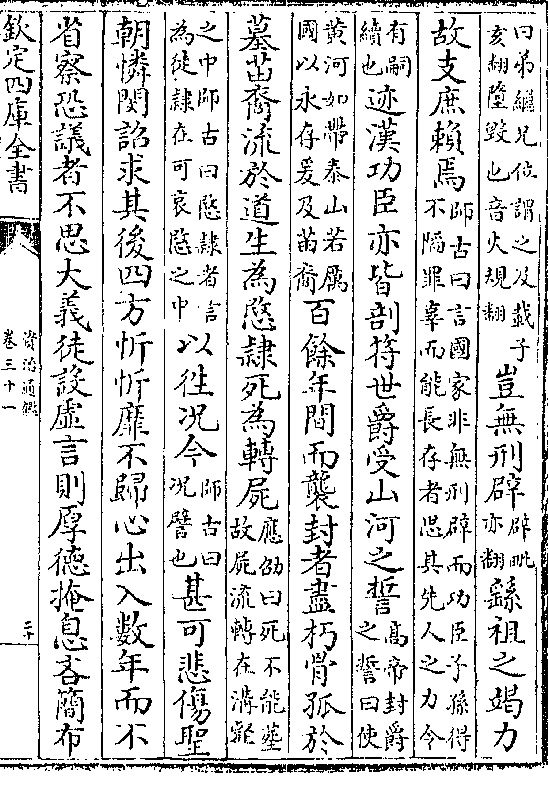 曰弟繼兄位謂之及載子
亥翻隳毀也音火規翻
豈無刑辟
辟毗
亦翻
繇祖之竭力
故支庶賴焉
師古曰言國家非無刑辟而功臣子孫得
不陷罪辜而能長存者思其先人之力今
有嗣
續也
迹漢功臣亦皆剖符世爵受山河之誓
高帝封爵
之誓曰使
黄河如帶泰山若厲
國以永存爰及苖裔
百餘年間而襲封者盡朽骨孤於
墓苖裔流於道生為愍隸死為轉屍
應劭曰死不能塟
故屍流轉在溝壑
之中師古曰愍隸者言
為徒隸在可哀愍之中
以徃况今
師古曰
况譬也
甚可悲傷聖
朝憐閔詔求其後四方忻忻靡不歸心出入數年而不
省察恐議者不思大義徒設虚言則厚德掩息吝簡布
欽定四庫全書
資治通鑑
卷三十一